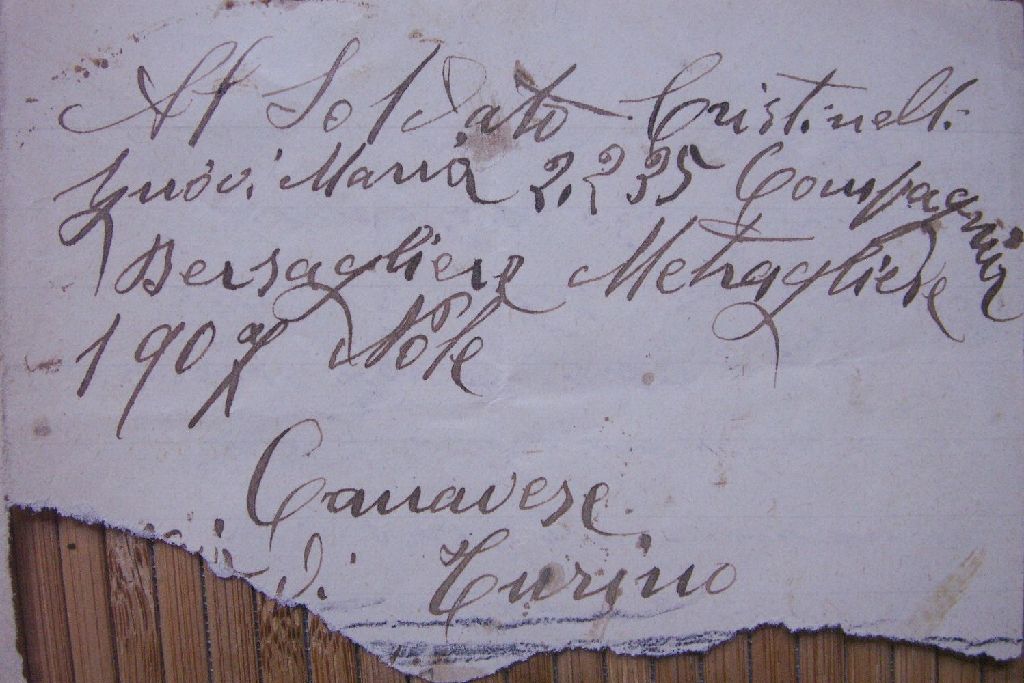 Al Soldato Cristinelli
Maria 2.235 Compagnia
Bersagliere Metragliere
1907 Nole
Canavese
di Turino